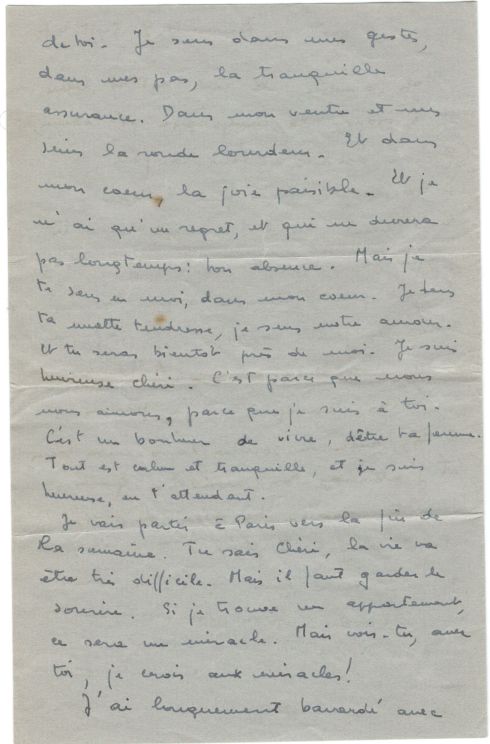 de toi. Je sens dans mes gestes,
dans mes pas, la tranquille
assurance. Dans mon ventre et mes
seins la ronde lourdeur. Et dans
mon coeur, la joie paisible. Et je
n'ai qu'un regret, et qui ne durera
pas longtemps : ton absence. Mais je
te sens en moi, dans mon coeur. Je sens
ta muette tendresse, je sens notre amour.
Et tu seras bientôt près de moi. Je suis
heureuse chéri. C'est parce que nous
nous aimons, parce que je suis à toi.
C'est un bonheur de vivre, d'être ta femme.
Tout est calme et tranquille, et je suis
heureuse, en t'attendant.
Je vais partir à Paris vers la fin de
la semaine. Tu sais Chéri, la vie va
être très difficile. Mais il faut garder le
sourire. Si je trouve un appartement,
ce sera un miracle. Mais vois-tu, avec
toi, je crois aux miracles !
J'ai longuement bavardé avec